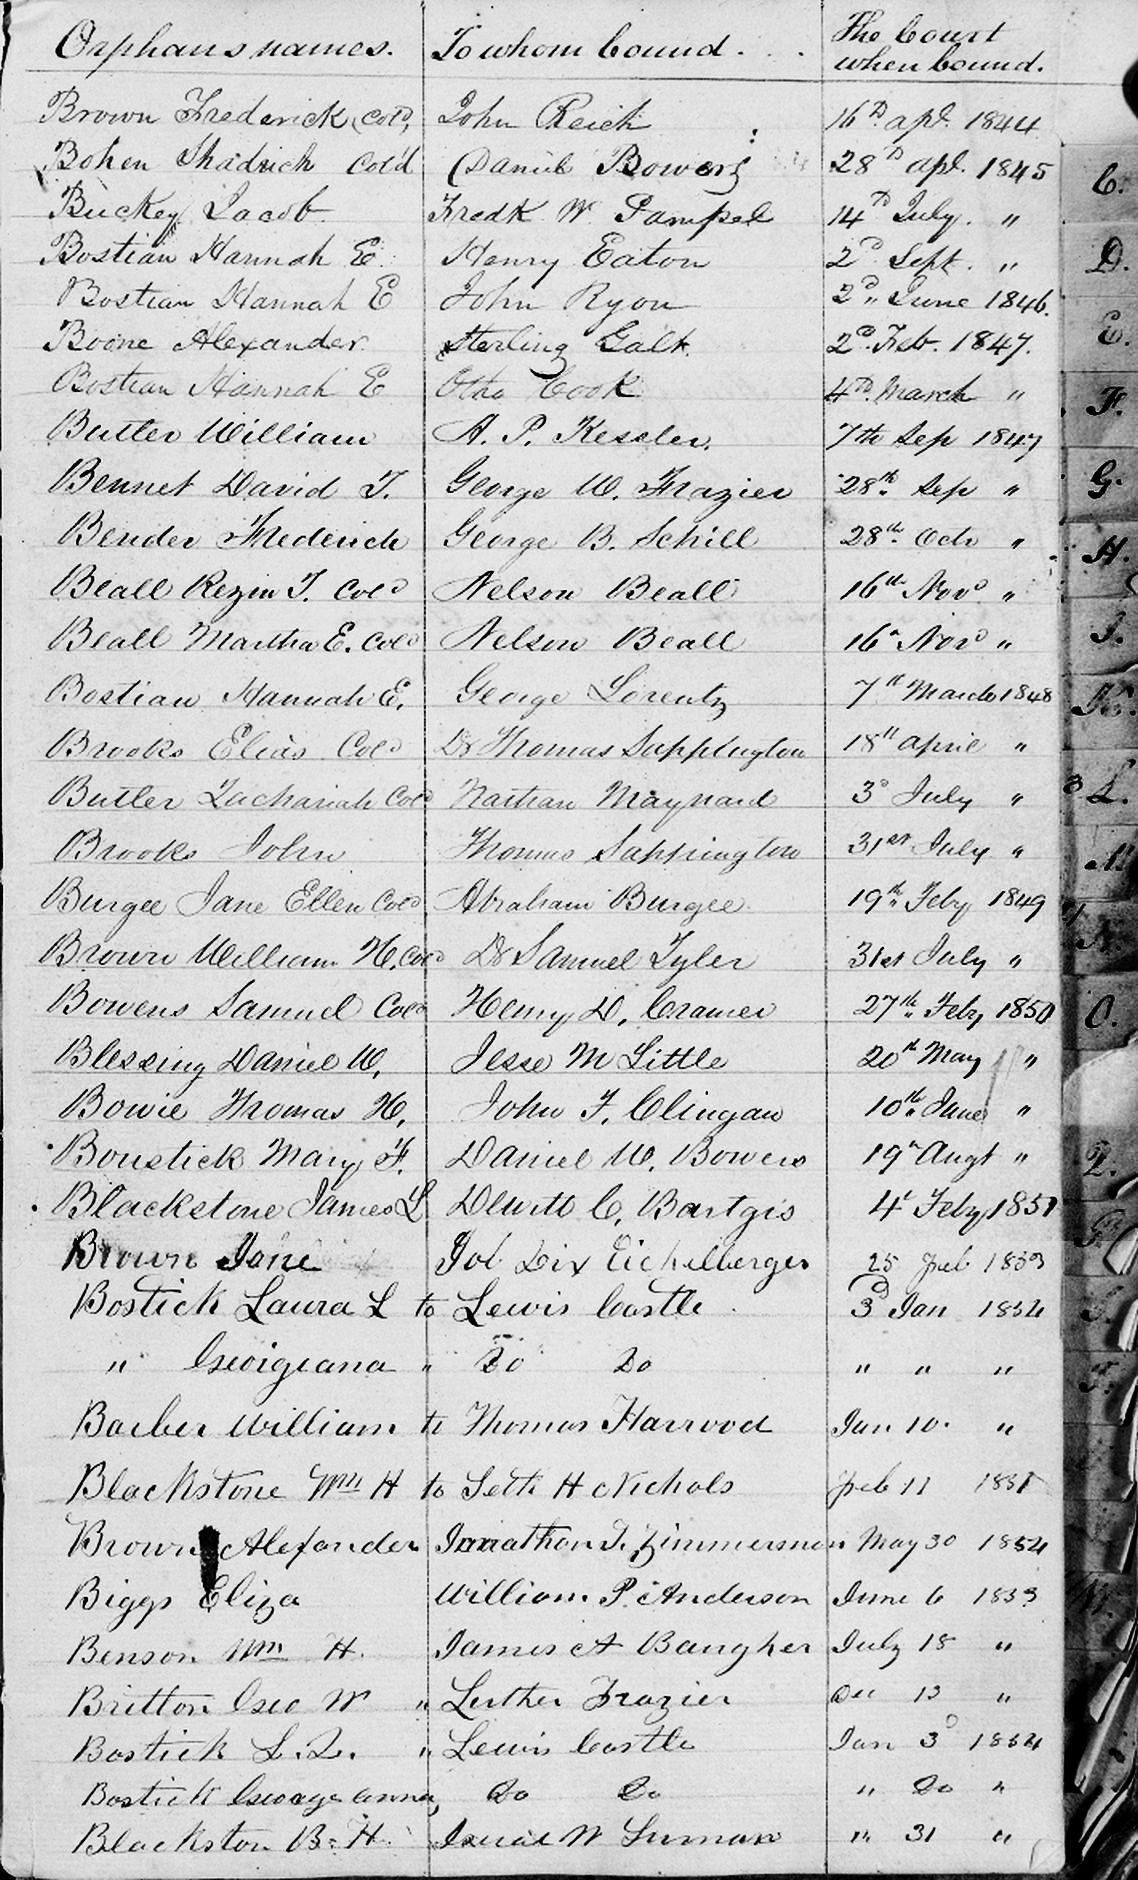 Orphans names. To whom bound. The Court when bound.
Brown Frederick (Cold, John Reich 16th apl. 1844
Bohen Shadrich Col'd Daniel Bowers 28th apl. 1845
Buckey Jacob Fredk W. Pampel 14th July. "
Bostian Hannah E. Henry Eaton 2d. Sept. "
Bostian Hannah E John Ryon 2d. June 1846.
Boone Alexander. Sterling Galt. 2d. Feb. 1847.
Bostian Hannah E Otho Cook 4th. March "
Butler William A. P. Kessler. 7th Sep 1847
Bennet David T. George W. Frazier 28th Sep "
Bender Frederich George B. Schill 28th Octr "
Beall Rezin T. Cold Nelson Beall 16th Novr "
Beall Martha E. Cold Nelson Beall 16th Novr "
Bostian Hannah E. George Lorentz 7th March 1848
Brooks Elias Cold Dr Thomas Sappington 18th April "
Butler Zachariah Cold Nathan Maynard 3d July "
Brooks John Thomas Sappington 31st July "
Burgee Jane Ellen Cold Abraham Burgee 19th Feby 1849
Brown William H. Cold Dr Samuel Tyler 31st July "
Bowens Samuel Cold Henry D. Cramer 27th Feby 1850
Blessing Daniel W. Jesse M Little 20th May "
Bowie Thomas H. John F. Clingan 10th June "
Boustick Mary F. Daniel W. Bowers 19th Augt "
Blackstone James L Dewitt C. Bartgis 4th Feby 1851
Brown Jane Job Dix Eichelberger 25 Feb 1853
Bostick Laura L to Lewis Castle 3d Jan 1854
" Georgeana " Do Do " " "
Barber William to Thomas Harwood Jan 10. "
Blackstone Wm H to Seth H Nichols Feb 11 1851
Brown Alexander Jonathan T. Zimmerman May 30 1854
Biggs Eliza William P. Anderson June 6 1853
Benson Wm H. James A Baugher July 18 "
Britton Geo W " Luther Frazier Dec 13 "
Bostick L. L. " Lewis Castle Jan 3d 1854
Bostick George anna, Do Do " Do "
Blackston B. H. Isaac W Suman " 31 "
C.
D.
E.
F.
G.
H.
I.
K.
L.
M.
N.
O.
T.
W.